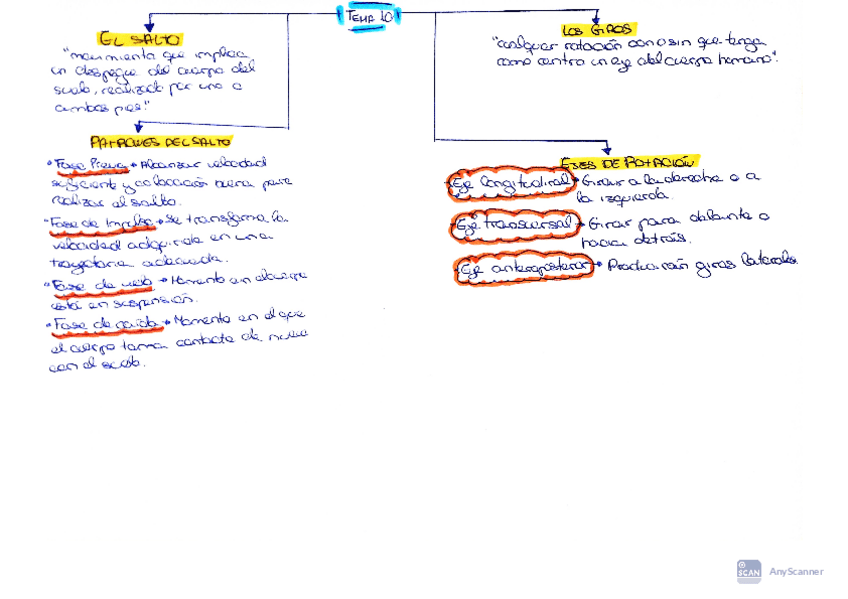 TEMA 10
EL SALTO
"movimiento que implica
un despegue del cuerpo del
suelo, realizado por uno o
ambos pies."
PATRONES DEL SALTO
• Fase Previa → Alcanzar velocidad
suficiente y colocación buena para
realizar el salto.
• Fase de Impulso → Se transforma la
velocidad adquirida en una
trayectoria adecuada.
• Fase de vuelo → Momento en el cuerpo
está en suspensión.
• Fase de caída → Momento en el que
el cuerpo toma contacto de nuevo
con el suelo.
LOS GIROS
"cualquier rotación con o sin que tenga
como centro un eje del cuerpo humano".
EJES DE ROTACIÓN
Eje longitudinal → Girar a la derecha o a
la izquierda.
Eje transversal → Girar para delante o
hacia detrás.
Eje anteroposterior → Producirán giros laterales
SCAN AnyScanner